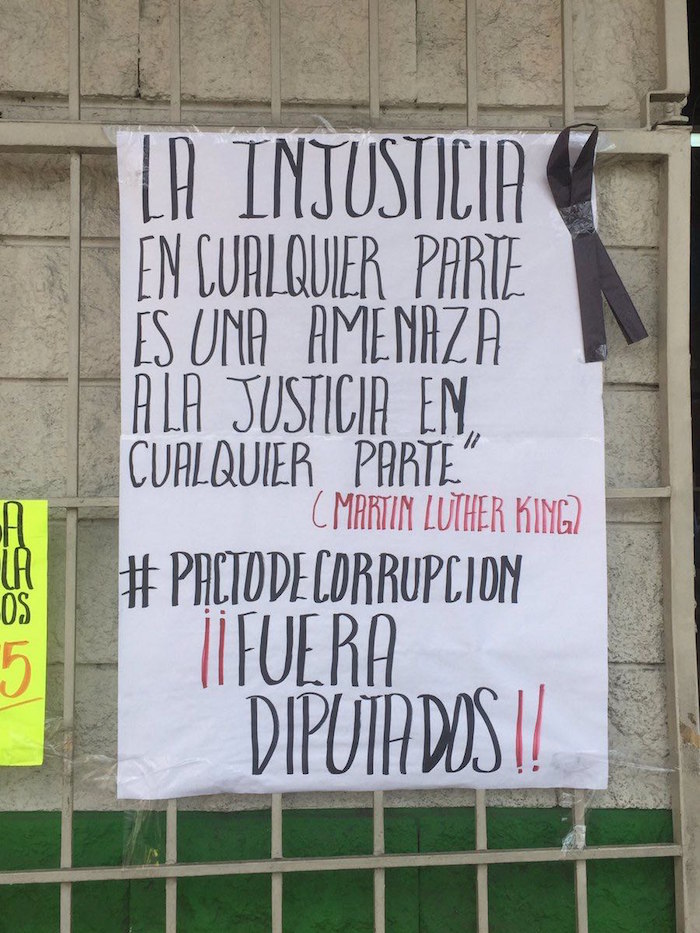 LA INJUSTICIA
EN CUALQUIER PARTE
ES UNA AMENAZA
A LA JUSTICIA EN
CUALQUIER PARTE"
(MARTIN LUTHER KING)
#PACTODECORRUPCION
¡¡FUERA
DIPUTADOS!!
LA
OS
5